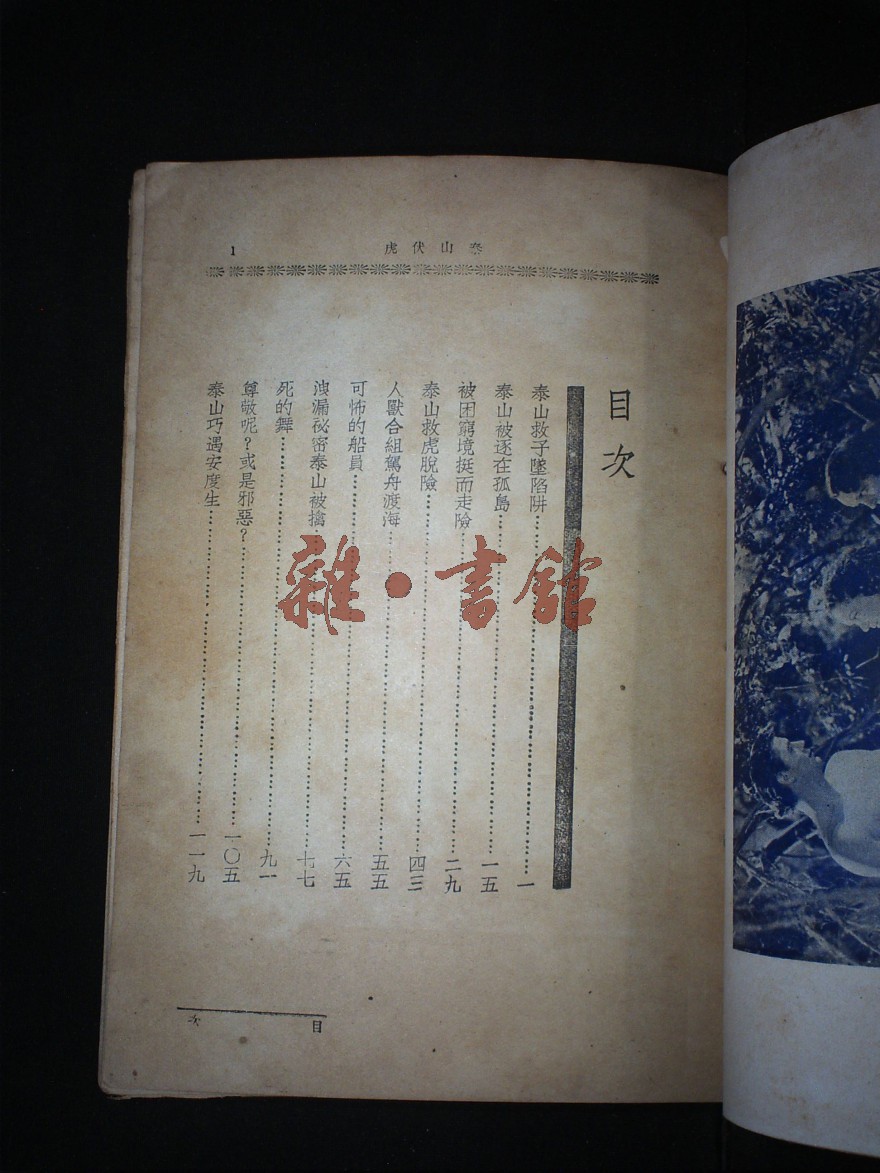 泰山伏虎
1
目次
泰山救子墜陷阱……一
泰山被逐在孤島……一五
被困窮境挺而走險……二九
泰山救虎脫險……四三
人獸合組駕舟渡海……五五
可怖的船員……六五
洩漏祕密泰山被擒……七七
死的舞……九一
尊敬呢？或是邪惡？……一〇五
泰山巧遇安度生……一一九
目次
雜·書館